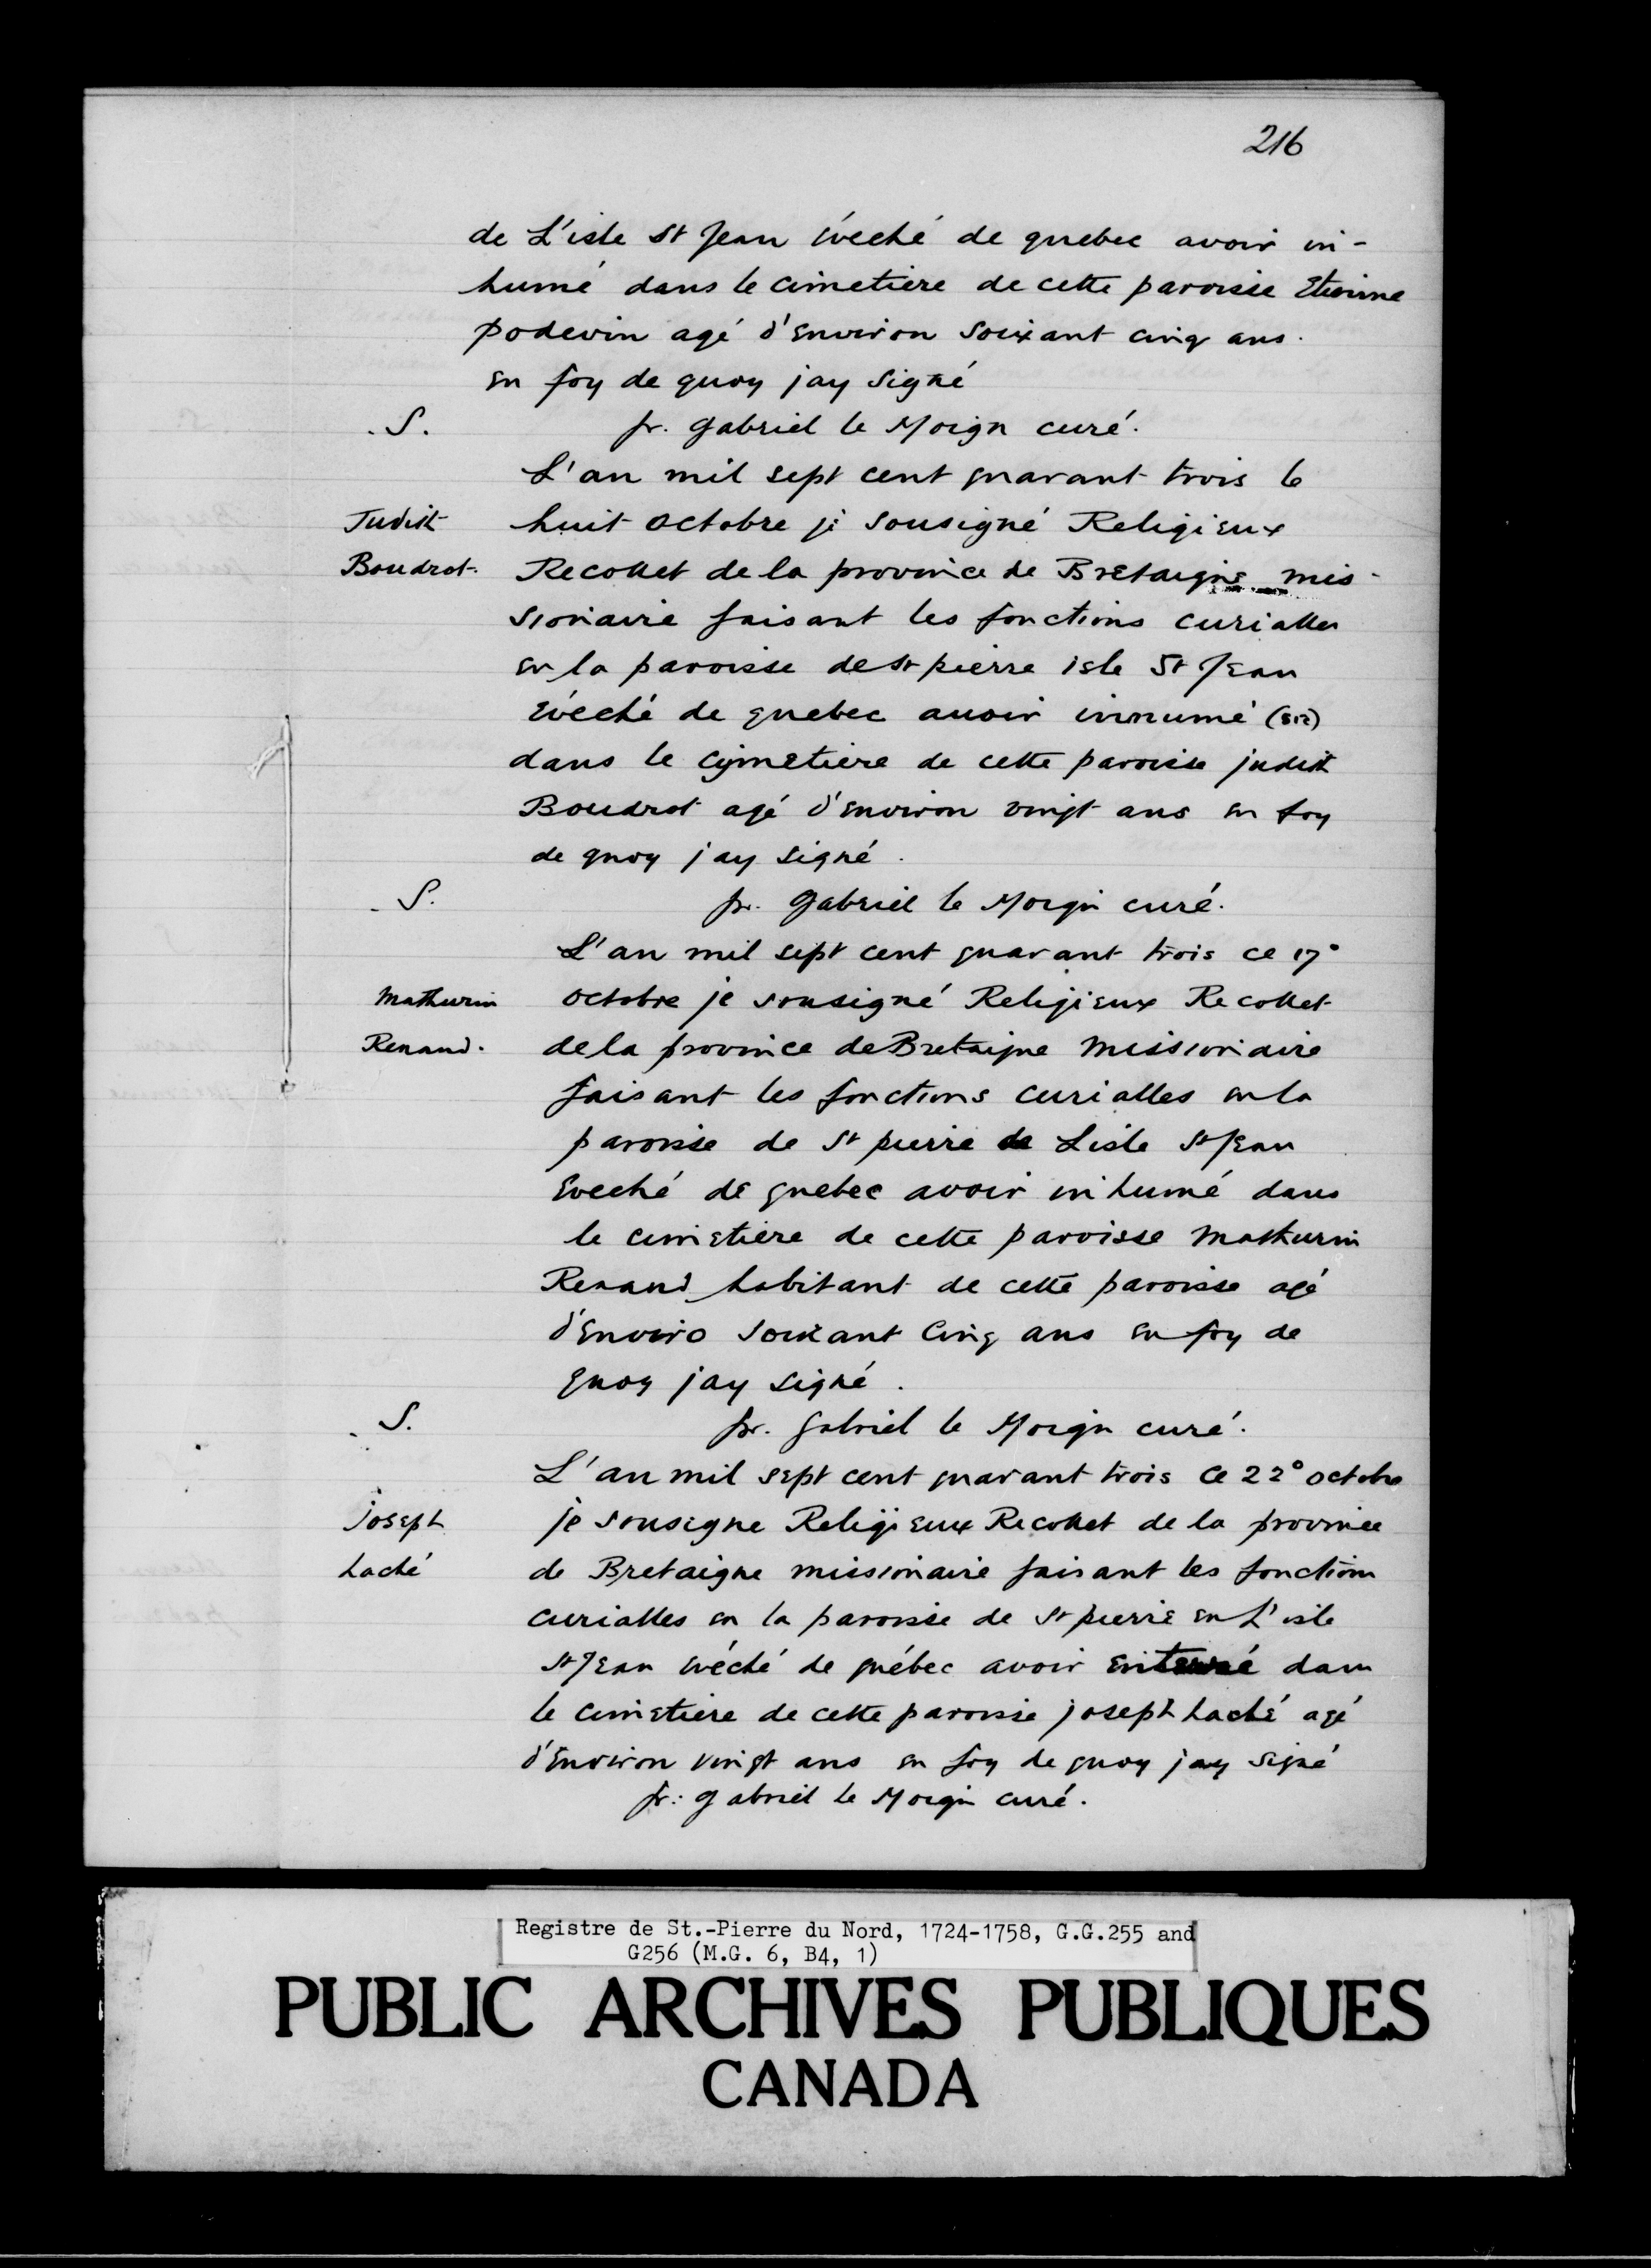 216
de L'isle St Jean évéché de quebec avoir in-
humé dans le cimetiere de cette paroisse Etienne
podevin agé d'environ soixant cinq ans.
en foy de quoy jay signé
.S. fr. gabriel le Moign curé.
L'an mil sept cent quarant trois le
Judith huit octobre je sousigné Religieux
Boudrot. Recollet de la province de Bretaigne mis-
sionaire faisant les fonctions curialles
en la paroisse de St pierre isle St Jean
évéché de quebec auoir innumé (sic)
dans le cymetiere de cette paroisse judith
Boudrot agé d'environ vingt ans en foy
de quoy jay signé.
.S. fr. gabriel le Moign curé.
L'an mil sept cent quarant trois ce 17°
Mathurin octobre je sousigné Religieux Recollet
Renaud. de la province de Bretaigne missionaire
faisant les fonctions curialles en la
paroisse de St pierre de Lisle St Jean
Eveché de quebec avoir inhumé dans
le cimetiere de cette paroisse Mathurin
Renaud habitant de cette paroisse agé
d'enviro soixant cinq ans en foy de
quoy jay signé.
.S. fr. gabriel le Moign curé.
L'an mil sept cent quarant trois ce 22° octobre
joseph je sousegne Religieux Recollet de la province
haché de Bretaigne missionaire faisant les fonctions
curialles en la paroisse de St pierre en L'isle
St Jean évéché de québec avoir enterré dans
le cimetiere de cette paroisse joseph haché agé
d'environ vingt ans en foy de quoy jay signé
fr: gabriel le Moign curé.
Registre de St.-Pierre du Nord, 1724-1758, G.G.255 and
G256 (M.G. 6, B4, 1)
PUBLIC ARCHIVES PUBLIQUES
CANADA